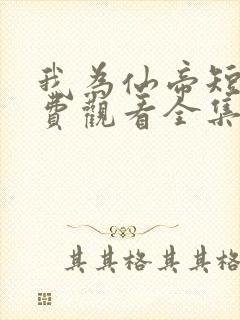 我为仙帝短
費觀看全集
其其格其其格